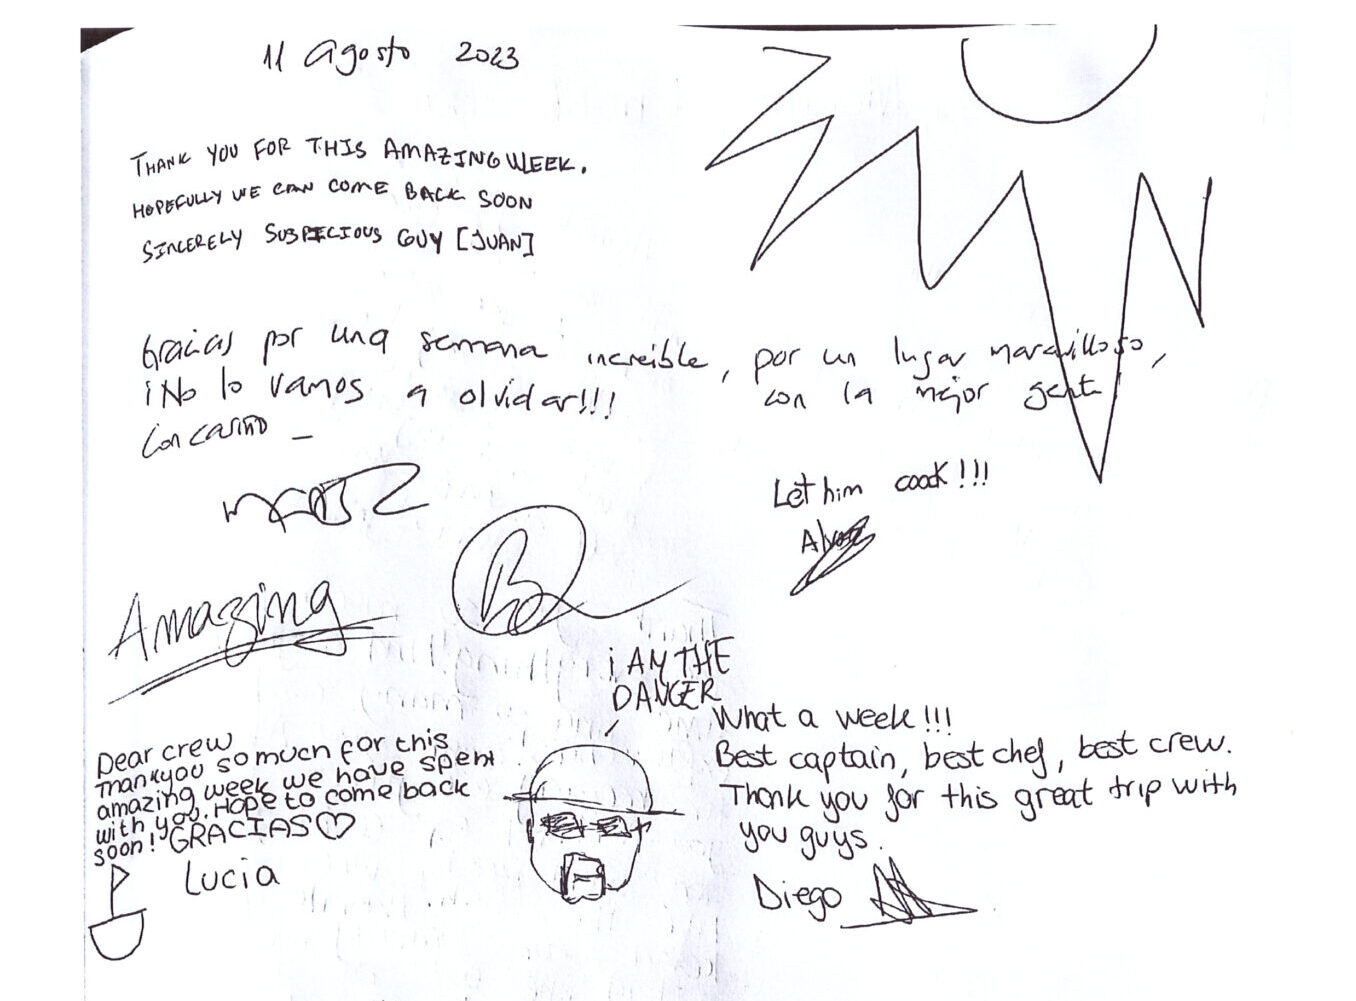 11 Agosto 2023
THANK YOU FOR THIS AMAZING WEEK.
HOPEFULLY WE CAN COME BACK SOON
SINCERELY SUSPICIOUS GUY [JUAN]
Gracias por una semana increible, por un lugar maravilloso,
¡No lo vamos a olvidar!!! con la mejor gente!
Con cariño _
Let him cook!!!
Amazing
i AM THE
DANGER
Dear crew
Thankyou so much for this
amazing week we have spent
with you. Hope to come back
soon! GRACIAS ♡
Lucia
What a week!!!
Best captain, best chef, best crew.
Thank you for this great trip with
you guys.
Diego